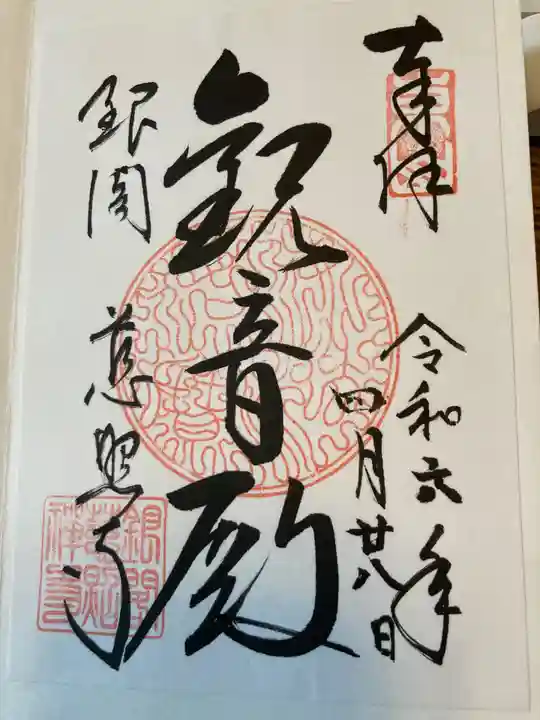 奉拝
令和六年
四月廿八日
観音殿
銀閣
慈照寺
銀閣
慈照
禅寺